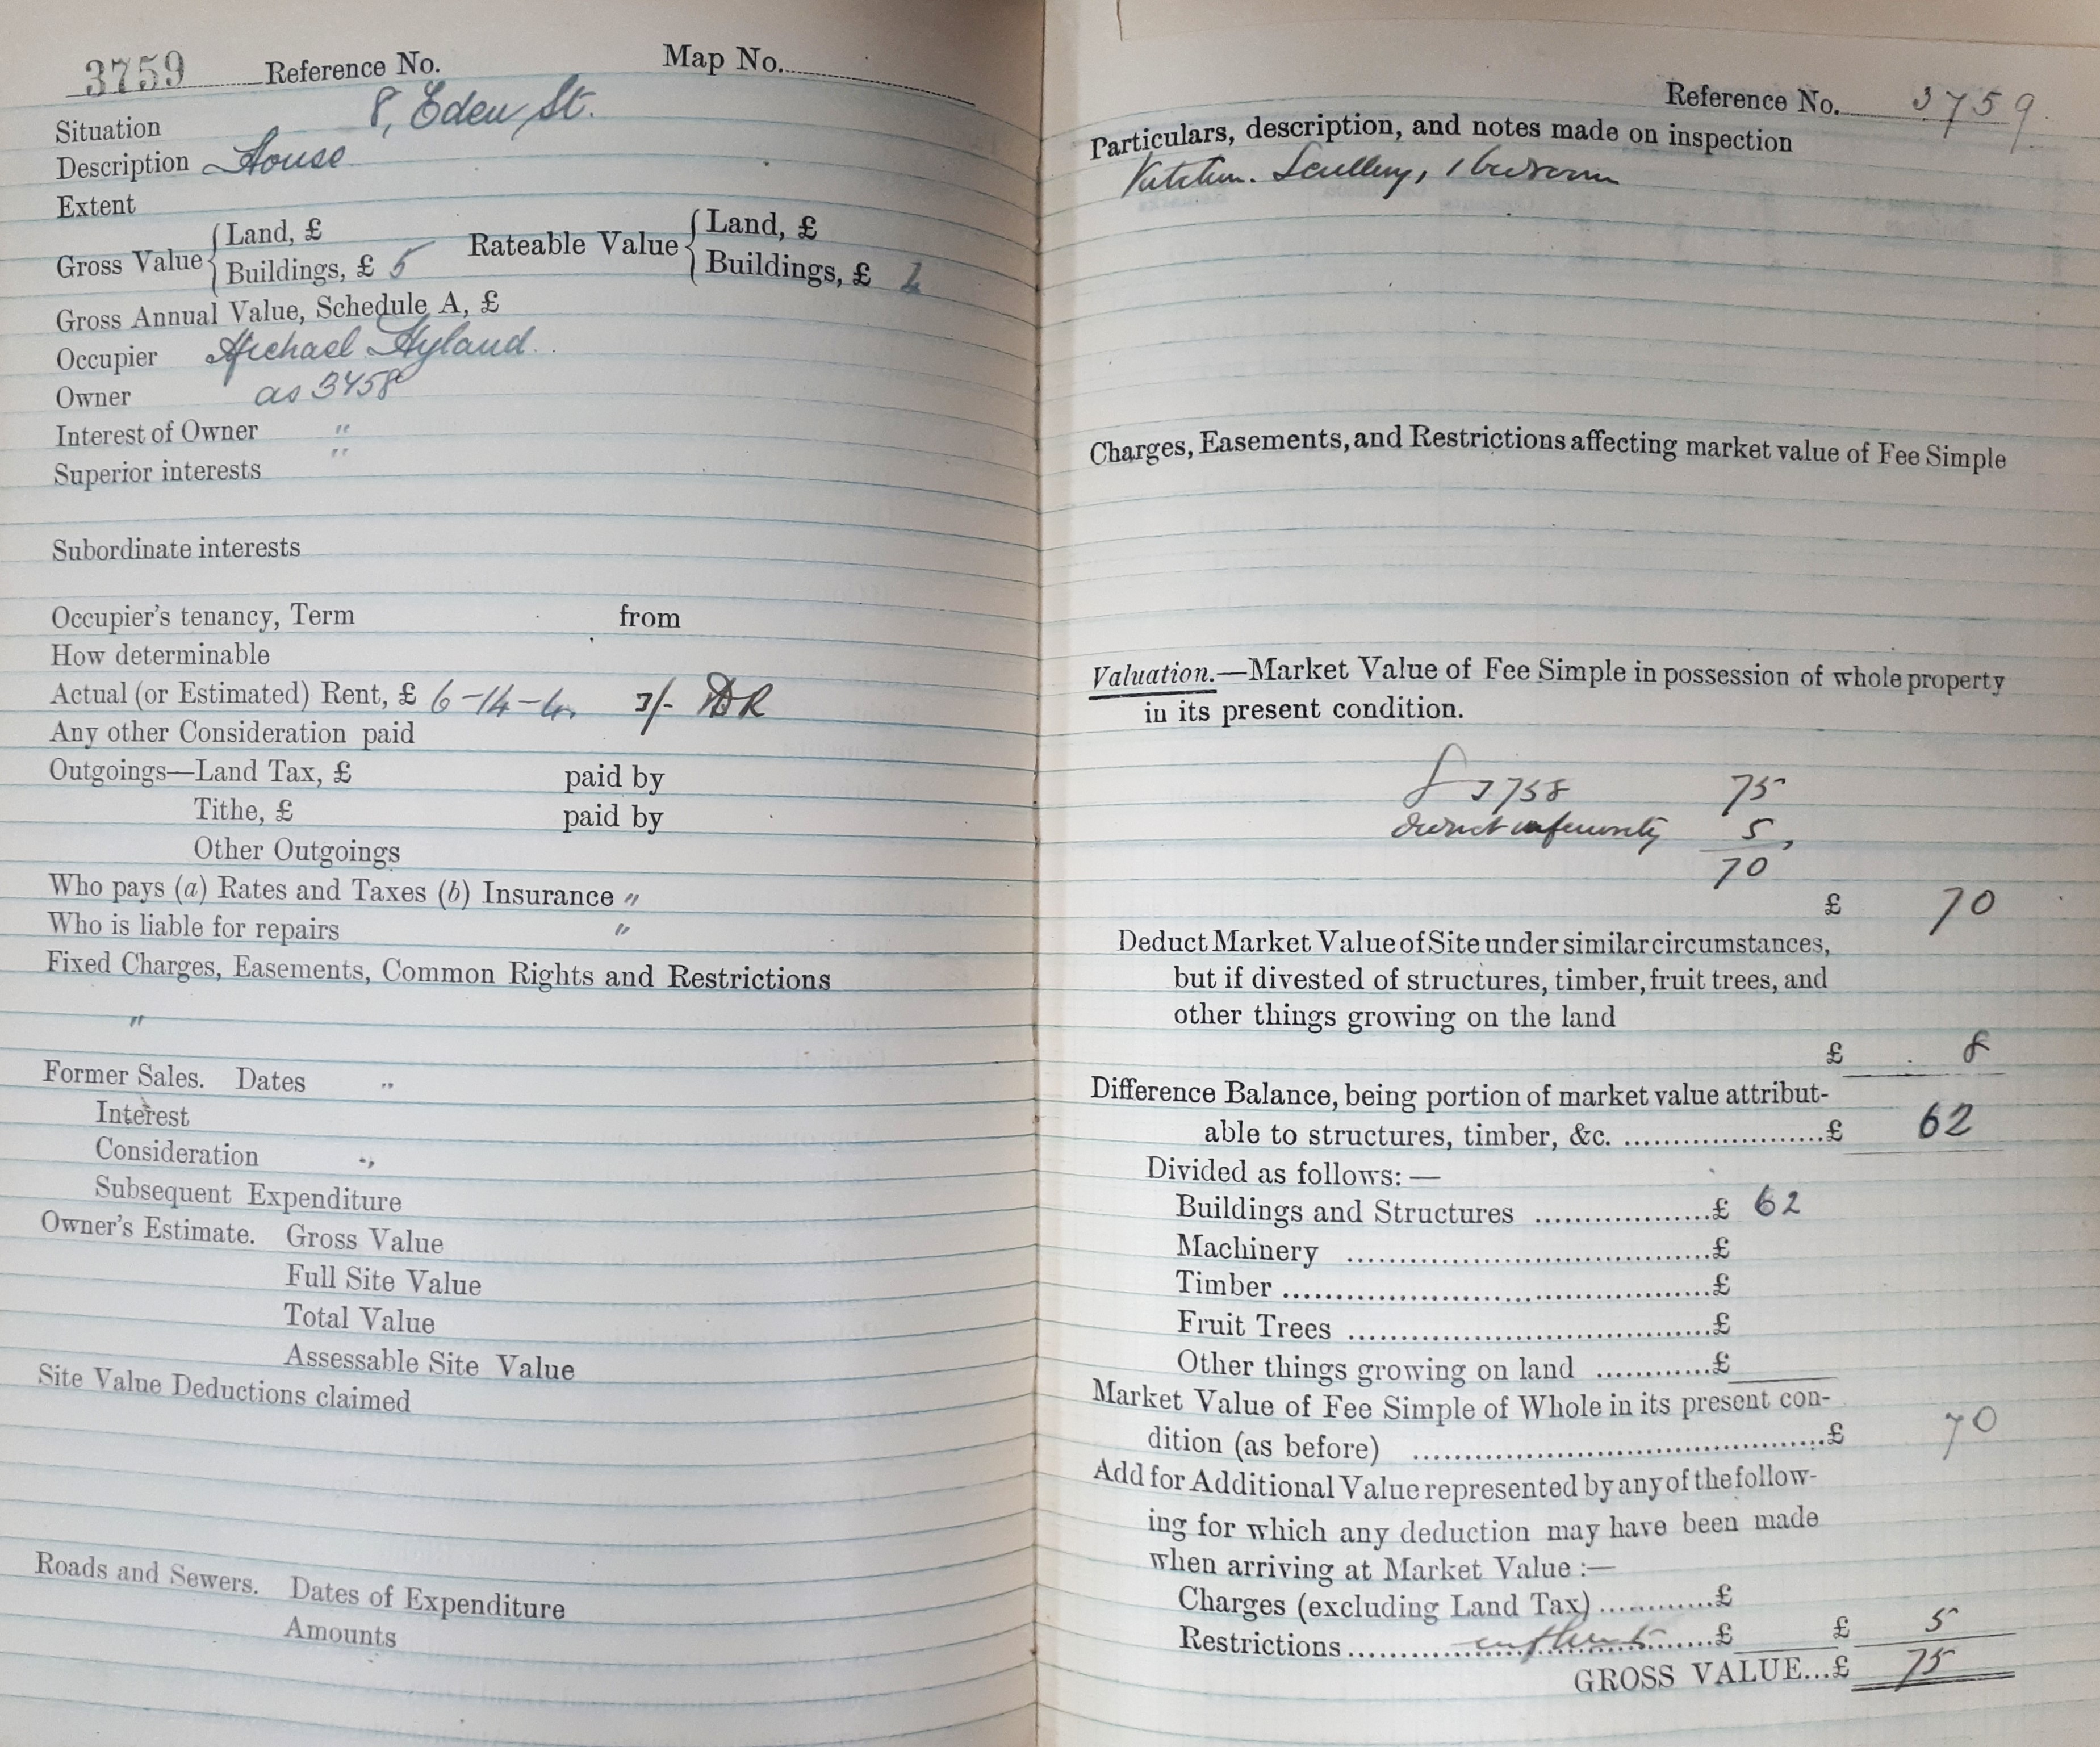 3759 Reference No. Map No.
Situation 8, Eden St.
Description House
Extent
Gross Value { Land, £
Buildings, £ 5
Rateable Value { Land, £
Buildings, £ 4
Gross Annual Value, Schedule A, £
Occupier Michael Hyland
Owner as 3758
Interest of Owner "
Superior interests "
Subordinate interests
Occupier's tenancy, Term from
How determinable
Actual (or Estimated) Rent, £ 6-14-4 3/-
Any other Consideration paid
Outgoings—Land Tax, £ paid by
Tithe, £ paid by
Other Outgoings
Who pays (a) Rates and Taxes (b) Insurance "
Who is liable for repairs "
Fixed Charges, Easements, Common Rights and Restrictions
"
Former Sales. Dates "
Interest
Consideration "
Subsequent Expenditure
Owner's Estimate. Gross Value
Full Site Value
Total Value
Assessable Site Value
Site Value Deductions claimed
Roads and Sewers. Dates of Expenditure
Amounts
Reference No. 3759
Particulars, description, and notes made on inspection
Kitchen. Scullery, 1 bedroom
Charges, Easements, and Restrictions affecting market value of Fee Simple
Valuation.—Market Value of Fee Simple in possession of whole property
in its present condition.
3758 75
deduct 5
70
£ 70
Deduct Market Value of Site under similar circumstances,
but if divested of structures, timber, fruit trees, and
other things growing on the land
£ 8
Difference Balance, being portion of market value attribut-
able to structures, timber, &c. £ 62
Divided as follows:—
Buildings and Structures £ 62
Machinery £
Timber £
Fruit Trees £
Other things growing on land £
Market Value of Fee Simple of Whole in its present con-
dition (as before) £ 70
Add for Additional Value represented by any of the follow-
ing for which any deduction may have been made
when arriving at Market Value :—
Charges (excluding Land Tax) £
Restrictions £ £ 5
GROSS VALUE...£ 75